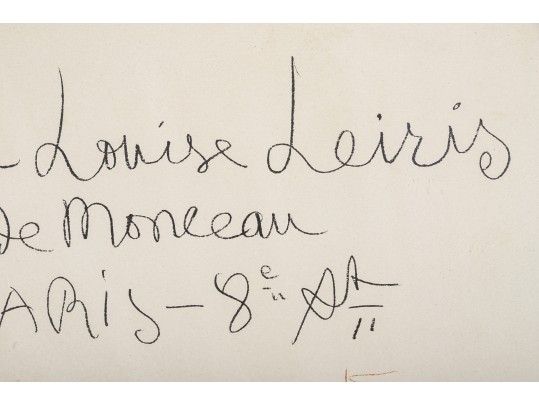 - Louise Leiris
De Monceau
ARis - 8e